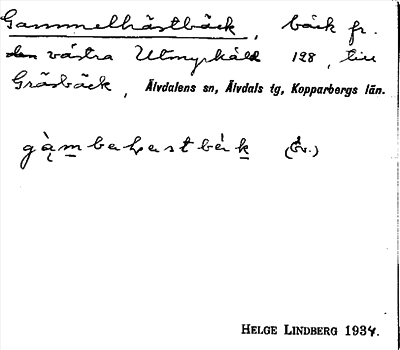 Gammelhästbäck, bäck fr.
den västra Utmyrkäld 128, till
Gräsbäck, Älvdalens sn, Älvdals tg, Kopparbergs län.
(Äv.)
HELGE LINDBERG 1934.